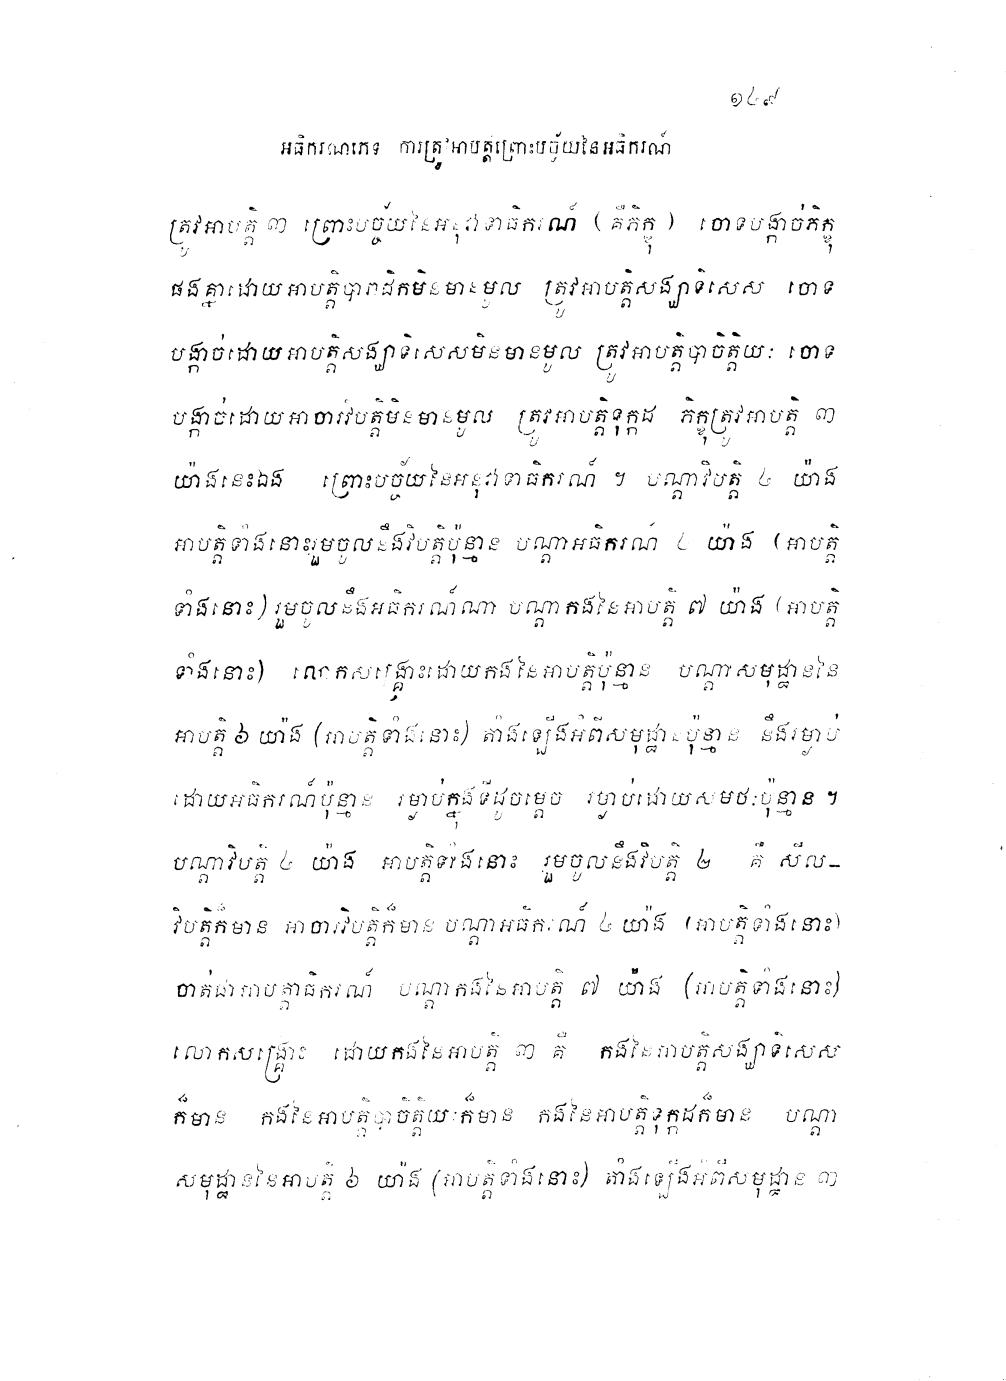 ១៤៩
អធិករណភេទ ការត្រូវអាបត្តិព្រោះបច្ច័យនៃអធិករណ៍
ត្រូវអាបត្តិ ៣ ព្រោះបច្ច័យនៃអនុវាទាធិករណ៍ ( គឺភិក្ខុ ) ចោទបង្កាច់ភិក្ខុ
ផងគ្នាដោយអាបត្តិបារាជិកមិនមានមូល ត្រូវអាបត្តិសង្ឃាទិសេស ចោទ
បង្កាច់ដោយអាបត្តិសង្ឃាទិសេសមិនមានមូល ត្រូវអាបត្តិបាចិត្តិយៈ ចោទ
បង្កាច់ដោយអាចារវិបត្តិមិនមានមូល ត្រូវអាបត្តិទុក្កដ ភិក្ខុត្រូវអាបត្តិ ៣
យ៉ាងនេះឯង ព្រោះបច្ច័យនៃអនុវាទាធិករណ៍ ។ បណ្តាវិបត្តិ ៤ យ៉ាង
អាបត្តិទាំងនោះរួមចូលនឹងវិបត្តិប៉ុន្មាន បណ្តាអធិករណ៍ ៤ យ៉ាង (អាបត្តិ
ទាំងនោះ) រួមចូលនឹងអធិករណ៍ណា បណ្តាកងនៃអាបត្តិ ៧ យ៉ាង (អាបត្តិ
ទាំងនោះ) លោកសង្គ្រោះដោយកងនៃអាបត្តិប៉ុន្មាន បណ្តាសមុដ្ឋាននៃ
អាបត្តិ ៦ យ៉ាង (អាបត្តិទាំងនោះ) តាំងឡើងអំពីសមុដ្ឋានប៉ុន្មាន នឹងរម្ងាប់
ដោយអធិករណ៍ប៉ុន្មាន រម្ងាប់ក្នុងទីដូចម្តេច រម្ងាប់ដោយសមថៈប៉ុន្មាន ។
បណ្តាវិបត្តិ ៤ យ៉ាង អាបត្តិទាំងនោះ រួមចូលនឹងវិបត្តិ ២ គឺ សីល-
វិបត្តិក៏មាន អាចារវិបត្តិក៏មាន បណ្តាអធិករណ៍ ៤ យ៉ាង (អាបត្តិទាំងនោះ)
ចាត់ជាអាបត្តាធិករណ៍ បណ្តាកងនៃអាបត្តិ ៧ យ៉ាង (អាបត្តិទាំងនោះ)
លោកសង្គ្រោះ ដោយកងនៃអាបត្តិ ៣ គឺ កងនៃអាបត្តិសង្ឃាទិសេស
ក៏មាន កងនៃអាបត្តិបាចិត្តិយៈក៏មាន កងនៃអាបត្តិទុក្កដក៏មាន បណ្តា
សមុដ្ឋាននៃអាបត្តិ ៦ យ៉ាង (អាបត្តិទាំងនោះ) តាំងឡើងអំពីសមុដ្ឋាន ៣